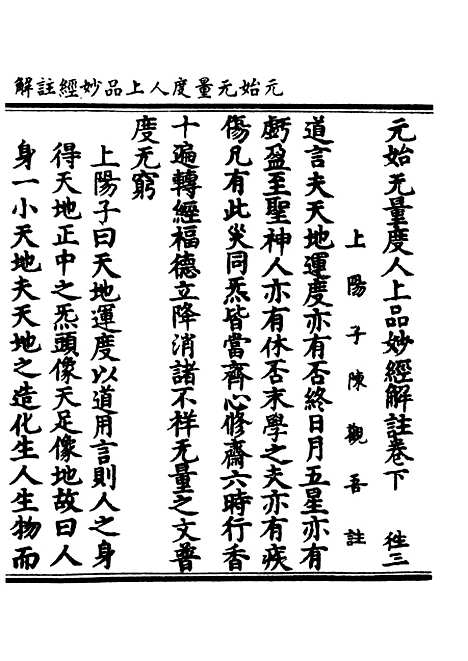 元始无量度人上品妙經註解
元始无量度人上品妙經解註卷下 徃三
上陽子陳觀吾註
道言夫天地運度亦有否終日月五星亦有
虧盈至聖神人亦有休否末學之夫亦有疾
傷凡有此灾同炁皆當齊心修齋六時行香
十遍轉經福德立降消諸不祥无量之文普
度无窮
上陽子曰天地運度以道用言則人之身
得天地正中之炁頭像天足像地故曰人
身一小天地夫天地之造化生人生物而